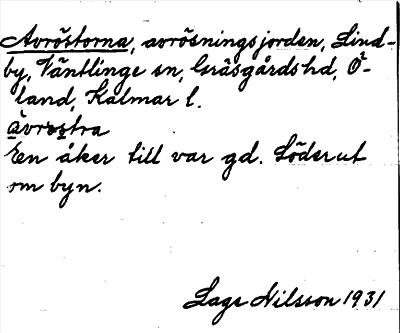 Avröstorna, avrösningsjorden, Lind-
by, Väntlinge sn, Gräsgårds hd, Ö-
land, Kalmar l.
ävrostra
En åker till var gd. Söderut
om byn.
Lage Nilsson 1931